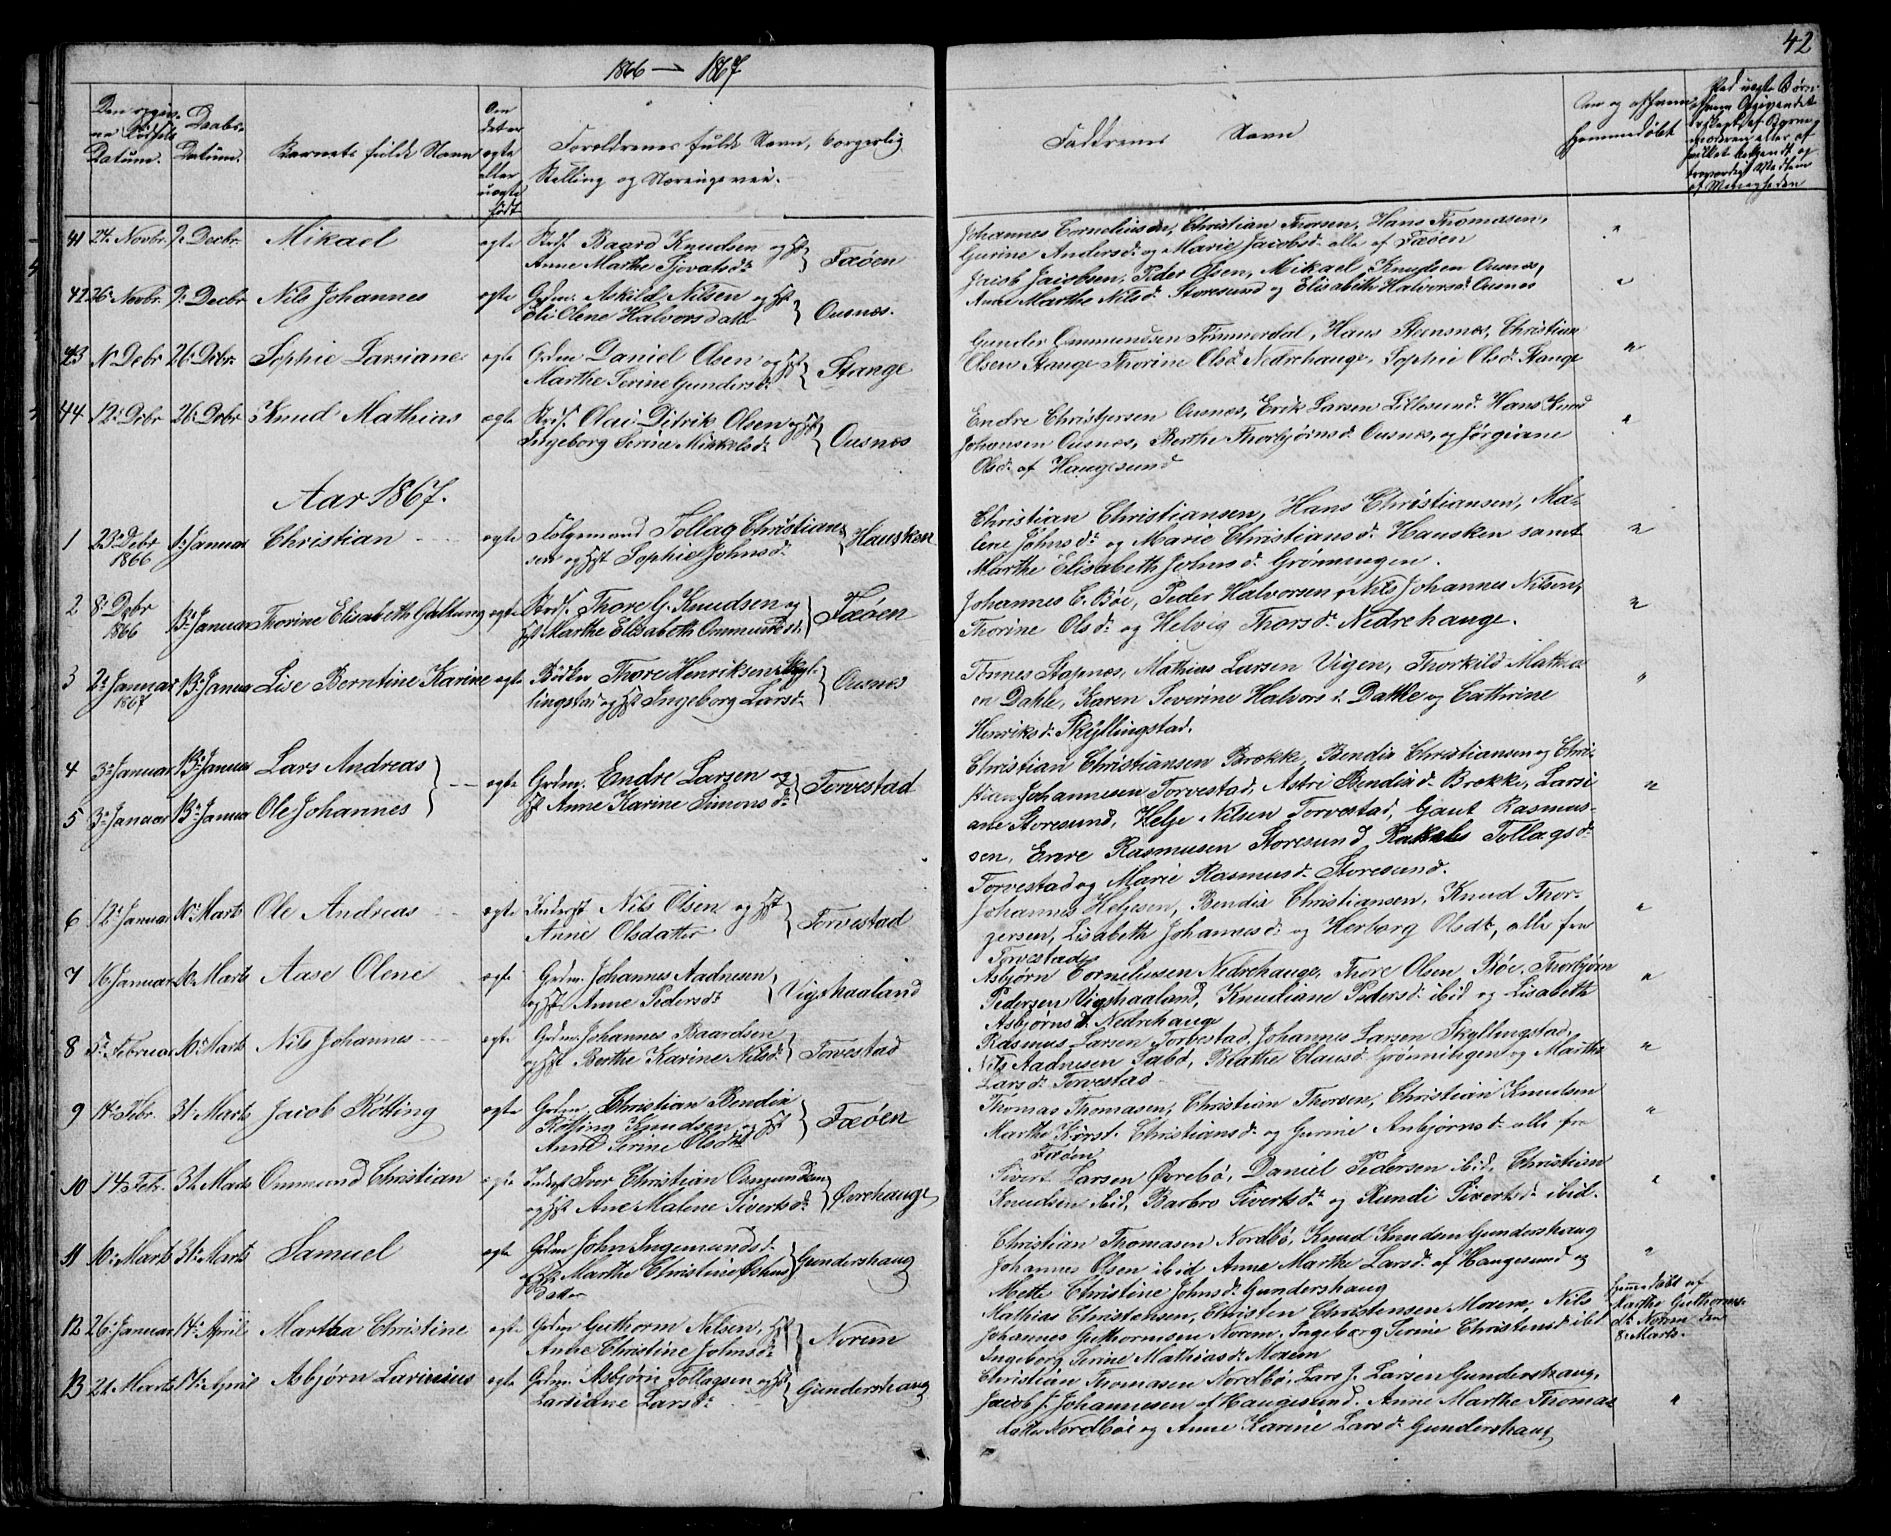 42
1866 — 1867
Den opgivne Fødsels Datum.
Daabs-Datum.
Barnets fulde Navn
Om det er ægte eller uægte født
Forældrenes fulde Navn, borgerlig Stilling og Næringsvei.
Faddernes Navn
Om og af hvem hjemmedøbt
41 24 Novbr. 9. Decbr. Mikael ægte Baard Knudsen og Hst
Anne Marthe Sjovatsd. Fæøen
Johannes Corneliussen, Christian Thorsen, Hans Thomasen,
Gurine Andersd. og Marie Jacobsd. alle af Fæøen "
42 26 Novbr. 9. Decbr Nils Johannes ægte Grdm. Askild Nilsen og Hst
Eli Olene Halvorsdatter Ousnes.
Jacob Jacobsen, Peder Olsen, Mikael Knudsen Ousnes,
Anne Marthe Nilsd. Storesund og Elisabeth Halvorsd. Ousnes "
43 11 Debr 26. Debr. Sophie Larsiane ægte Grdm Daniel Olsen og Hst
Marthe Serine Gundersd. Stange
Gunder Ommundsen Tømmerdal, Hans Stensnes, Christian
Olsen Stange Thorine Olsd. Nedrehauge, Sophie Olsd. Stange "
44 12. Debr 26. Debr Knud Mathias ægte Olai Ditrik Olsen og Hst
Ingeborg Serine Mikkelsd. Ousnes
Endre Christensen Ousnes, Erik Larsen Lillesund. Hans Knud
Johansen Ousnes, Berthe Thorbjørnsd. Ousnes, og Jørgiane
Olsd. af Haugesund "
Aar 1867.
1 23. Debr 1866 1. Januar Christian ægte Tollag Christian-
sen og Hst Sophie Johnsd. Hausken
Christian Christiansen, Hans Christiansen, Ma-
lene Johnsd. og Marie Christiansd. Hausken samt
Marthe Elisabeth Johnsd. Grønningen. "
2 8. Debr 1866 13. Januar Thorine Elisabeth Galtung ægte Thore G. Knudsen og
Hst Marthe Elisabeth Ommundsd. Fæøen
Johannes C. Bøe, Peder Halvorsen, Nils Johannes Nilsen,
Thorine Olsd. og Helvig Thorsd. Nedrehauge. "
3 2. Januar 1867 13. Januar Lise Berntine Karine ægte Bødker Thore Henriksen Skyl-
lingstad og Hst Ingeborg Larsd. Ousnes
Tønnes Stapnes, Mathias Larsen Vigen, Thorkild Mathia
en Dahle, Karen Severine Halvorsd. Dahle og Cathrine
Henriksd. Skyllingstad. "
4 3. Januar 13. Januar Lars Andreas
5 3. Januar 13. Januar Ole Johannes ægte Grdm. Endre Larsen og
Hst Anne Karine Simonsd. Torvestad
Christian Christiansen Brække, Bendix Christiansen og Chri-
stian Johannesen Torvestad, Astri Bendixd. Brekke, Larsi
ane Storesund, Helje Nilsen Torvestad, Gaut Rasmus-
sen, Erere Rasmusen Storesund, Rakels Tollagsd.
Torvestad og Marie Rasmusd. Storesund. "
6 12. Januar 10. Marts Ole Andreas ægte Inderst Nils Olsen og Hst
Anne Olsdatter Torvestad
Johannes Heljesen, Bendix Christiansen, Knud Thor-
gersen, Lisabeth Johannesd. og Herborg Olsdt., alle fra
Torvestad "
7 16. Januar 10. Marts Aase Olene ægte Grdm. Johannes Aadnesen
og Hst Anne Pedersd. Vigshaaland
Asbjørn Corneliusen Nedrehauge, Thore Olsen Bøe, Thorbjørn
Pedersen Vigshaaland, Knudiane Pedersd. ibid og Lisabeth
Asbjørnsd. Nedrehauge "
8 5. Februar 10. Marts Nils Johannes ægte Grdm. Johannes Baardsen
og Hst Berthe Karine Nilsd. Torvestad
Rasmus Larsen Torvestad, Johannes Larsen Skyllingstad,
Nils Aadnesen Sabø, Beathe Clausd. Grønningen og Marthe
Larsd. Torvestad "
9 14. Febr. 31. Marts Jacob Køtting ægte Grdm. Christian Bendix
Køtting Knudsen og Hst
Anne Serine Olsdt. Fæøen
Thomas Thomasen, Christian Thorsen, Christian Knudsen
Marthe Kirst. Christiansd. og Gurine Anbjørnsd. alle fra
Fæøen "
10 14. Febr. 31. Marts Ommund Christian ægte Inderst Iver Christian Ommundsen
og Hst Ane Malene Sivertsd. Øvrehauge
Sivert Larsen Øvrebø, Daniel Pedersen ibid, Christian
Knudsen ibid, Barbro Sivertsd. og Rundi Sivertsd. ibid. "
11 10. Marts 31. Marts Samuel ægte Grdm John Ingemundsd.
og Hst Marthe Christine Johns
datter Gundershaug
Christian Thomasen Nordbø, Knud Knudsen Gundershaug
Johannes Olsen ibid Anne Marthe Larsd. af Haugesund og
Mette Christine Johnsd. Gundershaug "
12 26. Januar 14. April Martha Christine ægte Grdm Guthorm Nilsen, Hst
Anne Christine Johnsd. Norem
Mathias Christensen, Christen Christensen Moxem, Nils
Johannes Guthormsen Norem, Ingeborg Serine Christensd. ibid
Ingeborg Serine Mathiasd. Moxem
hjemmedøbt af
Marthe Guthorms-
dt. Norem den
8. Marts.
13 21. Marts 14. April Asbjørn Lavinius ægte Grdm. Asbjørn Tollagsen og Hst
Larsiane Larsd. Gundershaug
Christian Thomasen Nordbø, Lars J. Larsen Gundershaug,
Jacob J. Johannesen af Haugesund. Anne Marthe Thomas
datter Nordbøe og Anne Karine Larsd. Gundershaug "